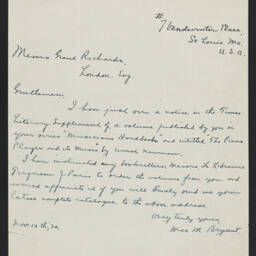 #7 Vandeventer Place,
St Louis, Mo.
U.S.A.
Messrs Grant Richards,
London, Eng.
Gentlemen,
I have just seen a notice in the Times
Literary Supplement of a volume published by you in
your series "Musicians Handbooks" and entitled "The Piano
Player and its Music" by Ernest Newman.
I have instructed my booksellers, Messrs
Ferguson of Paris to order the volume from you and
would appreciate it if you will kindly send me your
latest complete catalogue to the above address.
Very truly yours,
Max M. Bryant.
Nov. 10th, 20